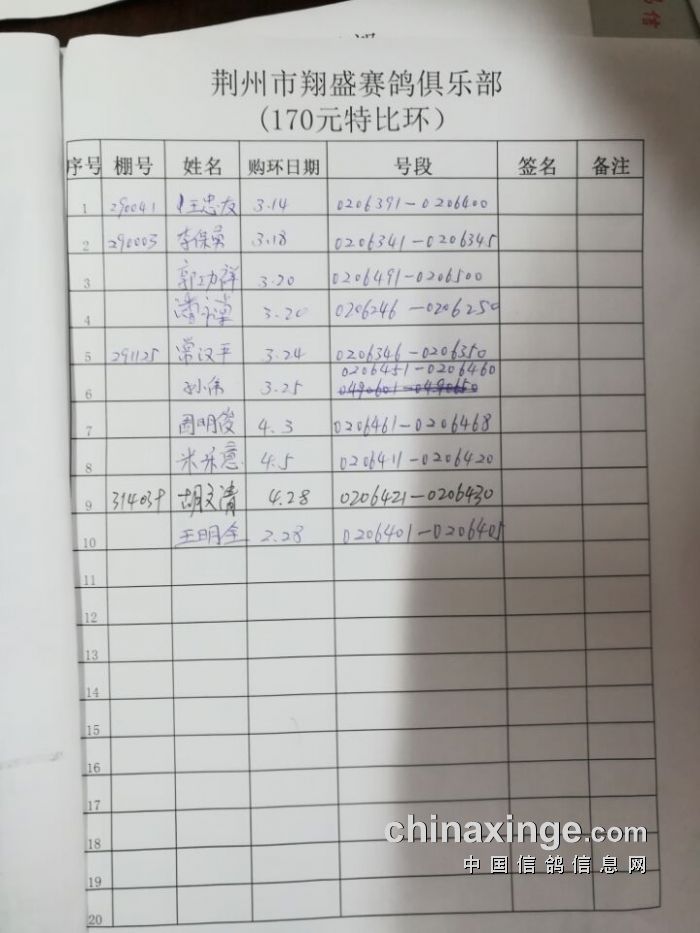 荆州市翔盛赛鸽俱乐部
(170元特比环)
序号 棚号 姓名 购环日期 号段 签名 备注
1 290041 王忠友 3.14 0206391-0206400
2 290003 李保勇 3.18 0206341-0206345
3 郭功祥 3.20 0206491-0206500
4 3.20 0206246-0206250
5 291125 常汉平 3.24 0206346-0206350
0206451-0206460
6 孙伟 3.25 0490601-0490650
7 周明俊 4.3 0206461-0206468
8 米乐意 4.5 0206411-0206420
9 314039 胡文清 4.28 0206421-0206430
10 王明全 2.28 0206401-0206405
11
12
13
14
15
16
17
18
19
20
chinaxinge.com
中国信鸽信息网